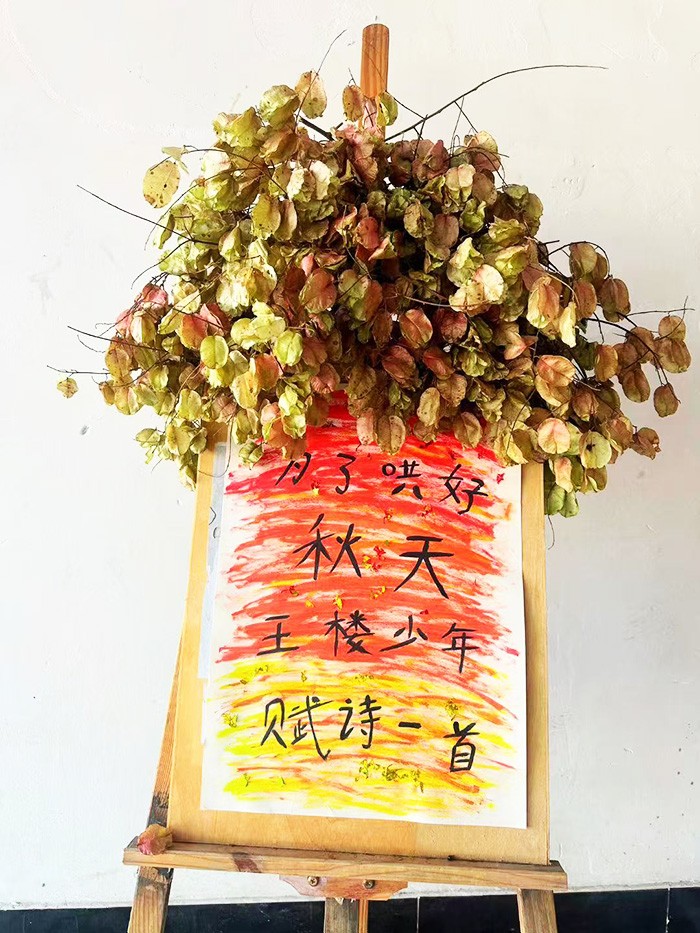 了哄好
秋天
王楼少年
赋诗一首